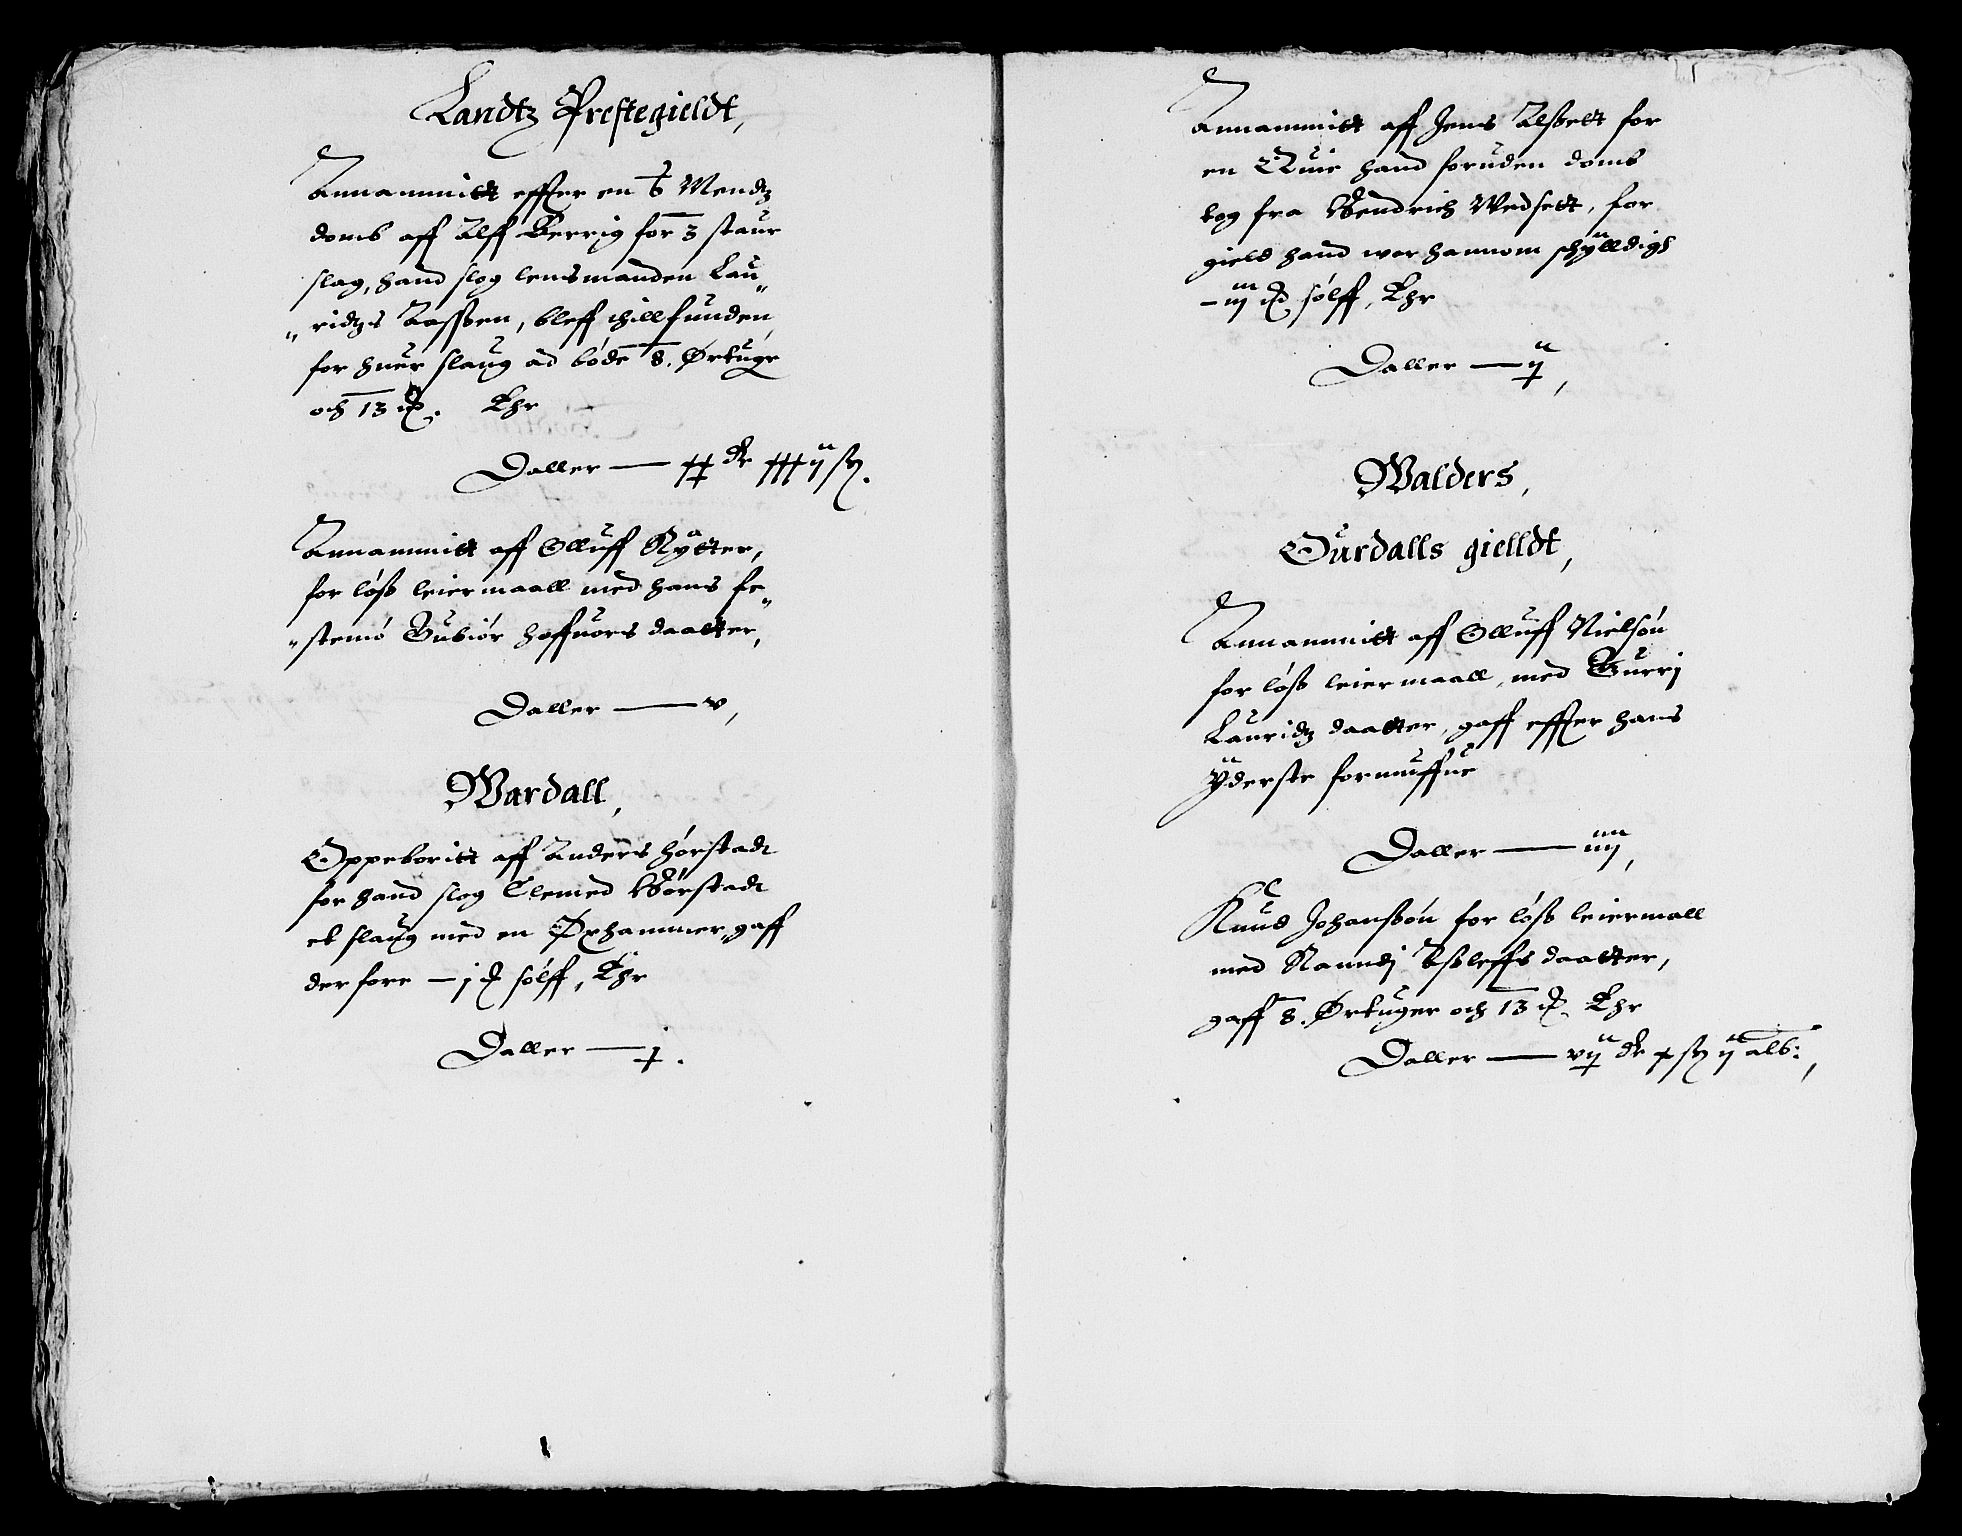 Landtz Prestegieldt,
Annammitt effter en 6 Mendtz
domb aff Alff Berrig for 3 staur
slag, hand slog lensmanden Lau„
„ridtzs Aassen, bleff thillfunden
for huer slaug ad böde 8. Örtuge
och 13 Thr
Daller — sk.
Annammitt aff Olluff Rytter,
for lösß leiermaall med hans fe„
„stemö Gubiör hoffuors daatter,
Daller — v,
Wardall,
Oppeboritt aff Anders hörstadt
for hand slog Clemed Hörstadt
et slaug med en Öxhammer, gaff
derfore — j sölff, Thr
Daller — j.
Annammitt aff Jens Alsßett for
en Quie hand foruden domb
tog fra Hendrich Wedsett, for
gield hand war hannom schylldigh
— iij sölff, Thr
Daller — ij,
Walders,
Ourdalls gielldt,
Annammitt aff Olluff Nielsön
for lösß leiermaall, med Gurrj
Lauridtz daatter, gaff effter hans
Yderste formuffue
Daller — iiij,
Knud Johansßön for lösß leiermall
med Ranndj Asßleffs daatter,
gaff 8. Örtuger och 13 Thr
Daller — vij dr x sk ij alb:,